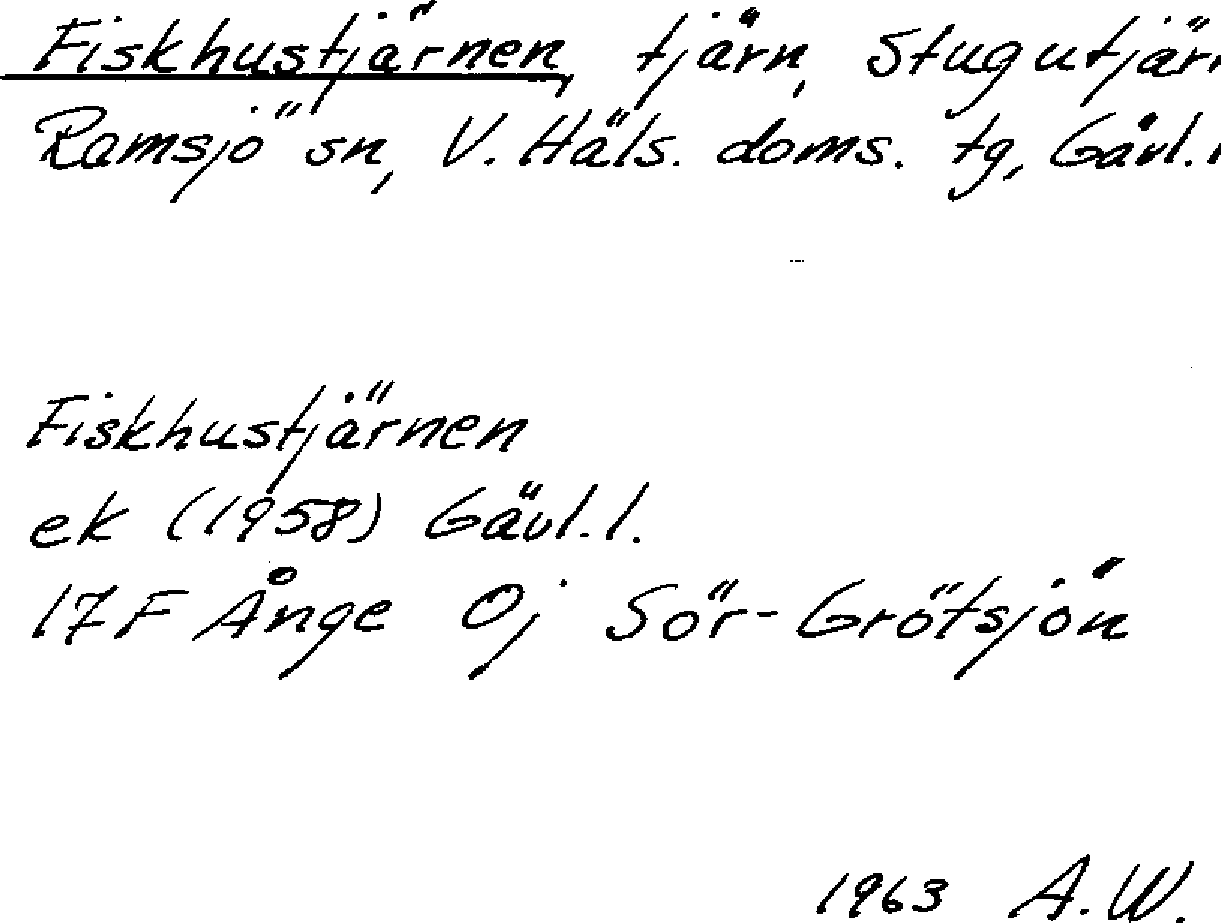 Fiskhustjärnen, tjärn, Stugutjär
Ramsjö sn, V. Häls. doms. tg, Gävl.l
Fiskhustjärnen
ek (1958) Gävl.l.
17F Ånge Oj Sör-Grötsjön
1963 A.W.